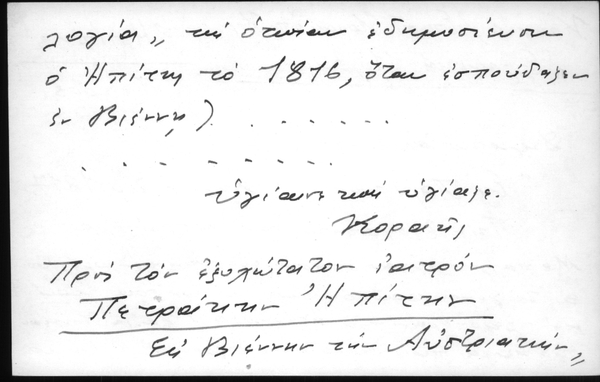 λογία,, τὴν ὁποίαν ἐδημοσίευσεν
ὁ Ἠπίτης τὸ 1816, ὅταν ἐσπούδαζεν
ἐν Βιέννῃ) . . . . . .
. . - - . - - - .
ὑγίαινε καὶ ὑγίαζε.
Κοραῆς
Πρὸς τὸν ἐξοχώτατον ἰατρὸν
Πετράκην Ἠπίτην
Εἰς Βιέννην τῆς Αὐστρίας,,